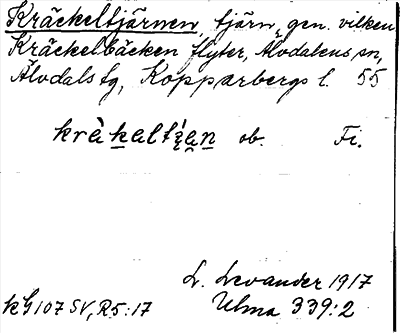 Kräckeltjärnen, tjärn gen. vilken
Kräckelbäcken flyter, Älvdalens sn,
Älvdals tg, Kopparbergs l. 55
ob. Fi.
L. Levander 1917
kG 107 SV, R5:17 Ulma 339:2